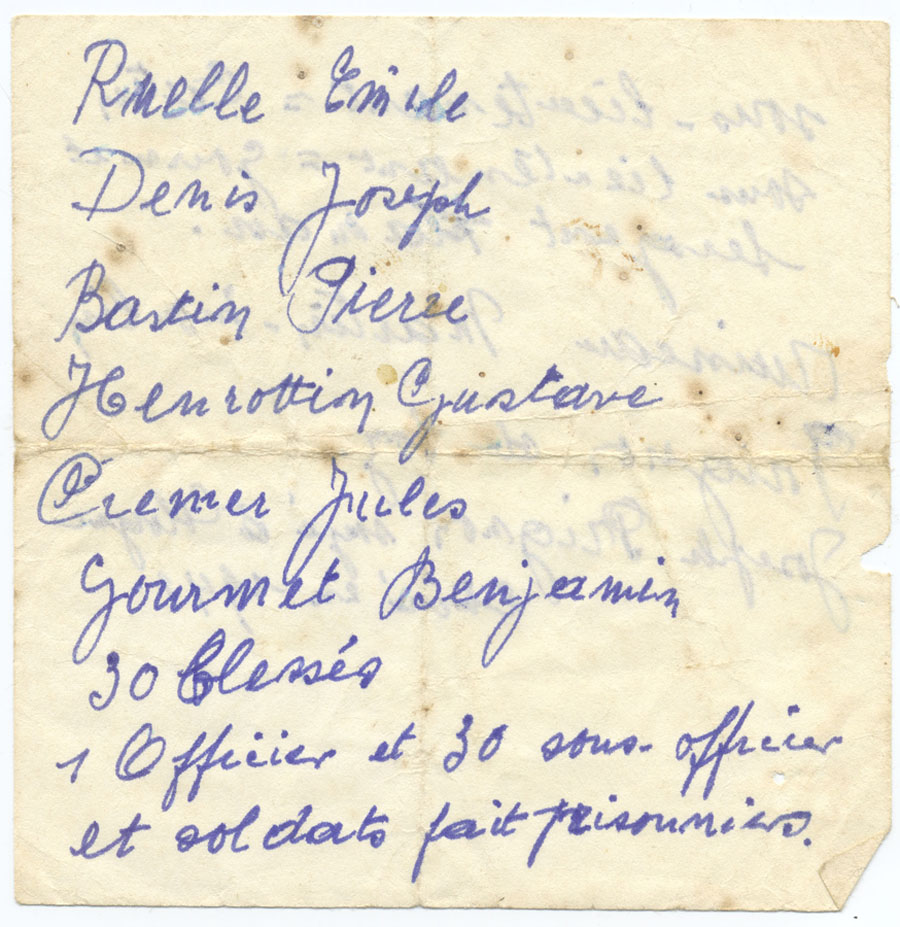 Ruelle Emile
Denis Joseph
Bastin Pierre
Henrottin Gustave
Cremer Jules
Gourmet Benjamin
30 blessés
1 Officier et 30 sous-officier
et soldats fait prisonniers.